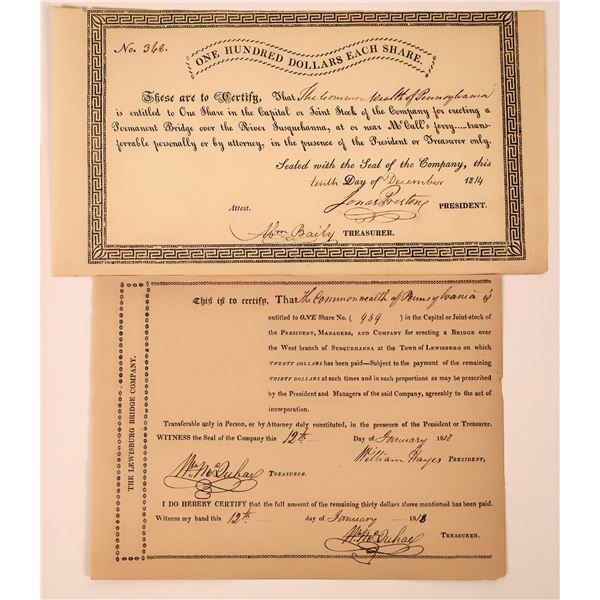 ONE HUNDRED DOLLARS EACH SHARE.
No. 366.
These are to Certify, That The Common Wealth of Pennsylvania
is entitled to One Share in the Capital or Joint Stock of the Company for erecting a
Permanent Bridge over the River Susquehanna, at or near McCall's ferry....trans-
ferrable personally or by attorney, in the presence of the President or Treasurer only.
Sealed with the Seal of the Company, this
tenth Day of December 1814
Jonas Preston PRESIDENT.
Attest.
Abm Baily TREASURER.
THE LEWISBURG BRIDGE COMPANY.
This is to certify, That The Commonwealth of Pennsylvania is
entitled to ONE Share No. ( 959 ) in the Capital or Joint-stock of
the PRESIDENT, MANAGERS, AND COMPANY for erecting a BRIDGE over
the West branch of SUSQUEHANNA at the Town of LEWISBURG on which
TWENTY DOLLARS has been paid—Subject to the payment of the remaining
THIRTY DOLLARS at such times and in such proportions as may be prescribed
by the President and Managers of the said Company, agreeably to the act of
incorporation.
Transferable only in Person, or by Attorney duly constituted, in the presence of the President or Treasurer.
WITNESS the Seal of the Company this 12th Day of January 1818
William Hayes PRESIDENT,
Wm McQuhae TREASURER.
I DO HEREBY CERTIFY that the full amount of the remaining thirty dollars above mentioned has been paid.
Witness my hand this 12th day of January 1818
Wm McQuhae TREASURER.